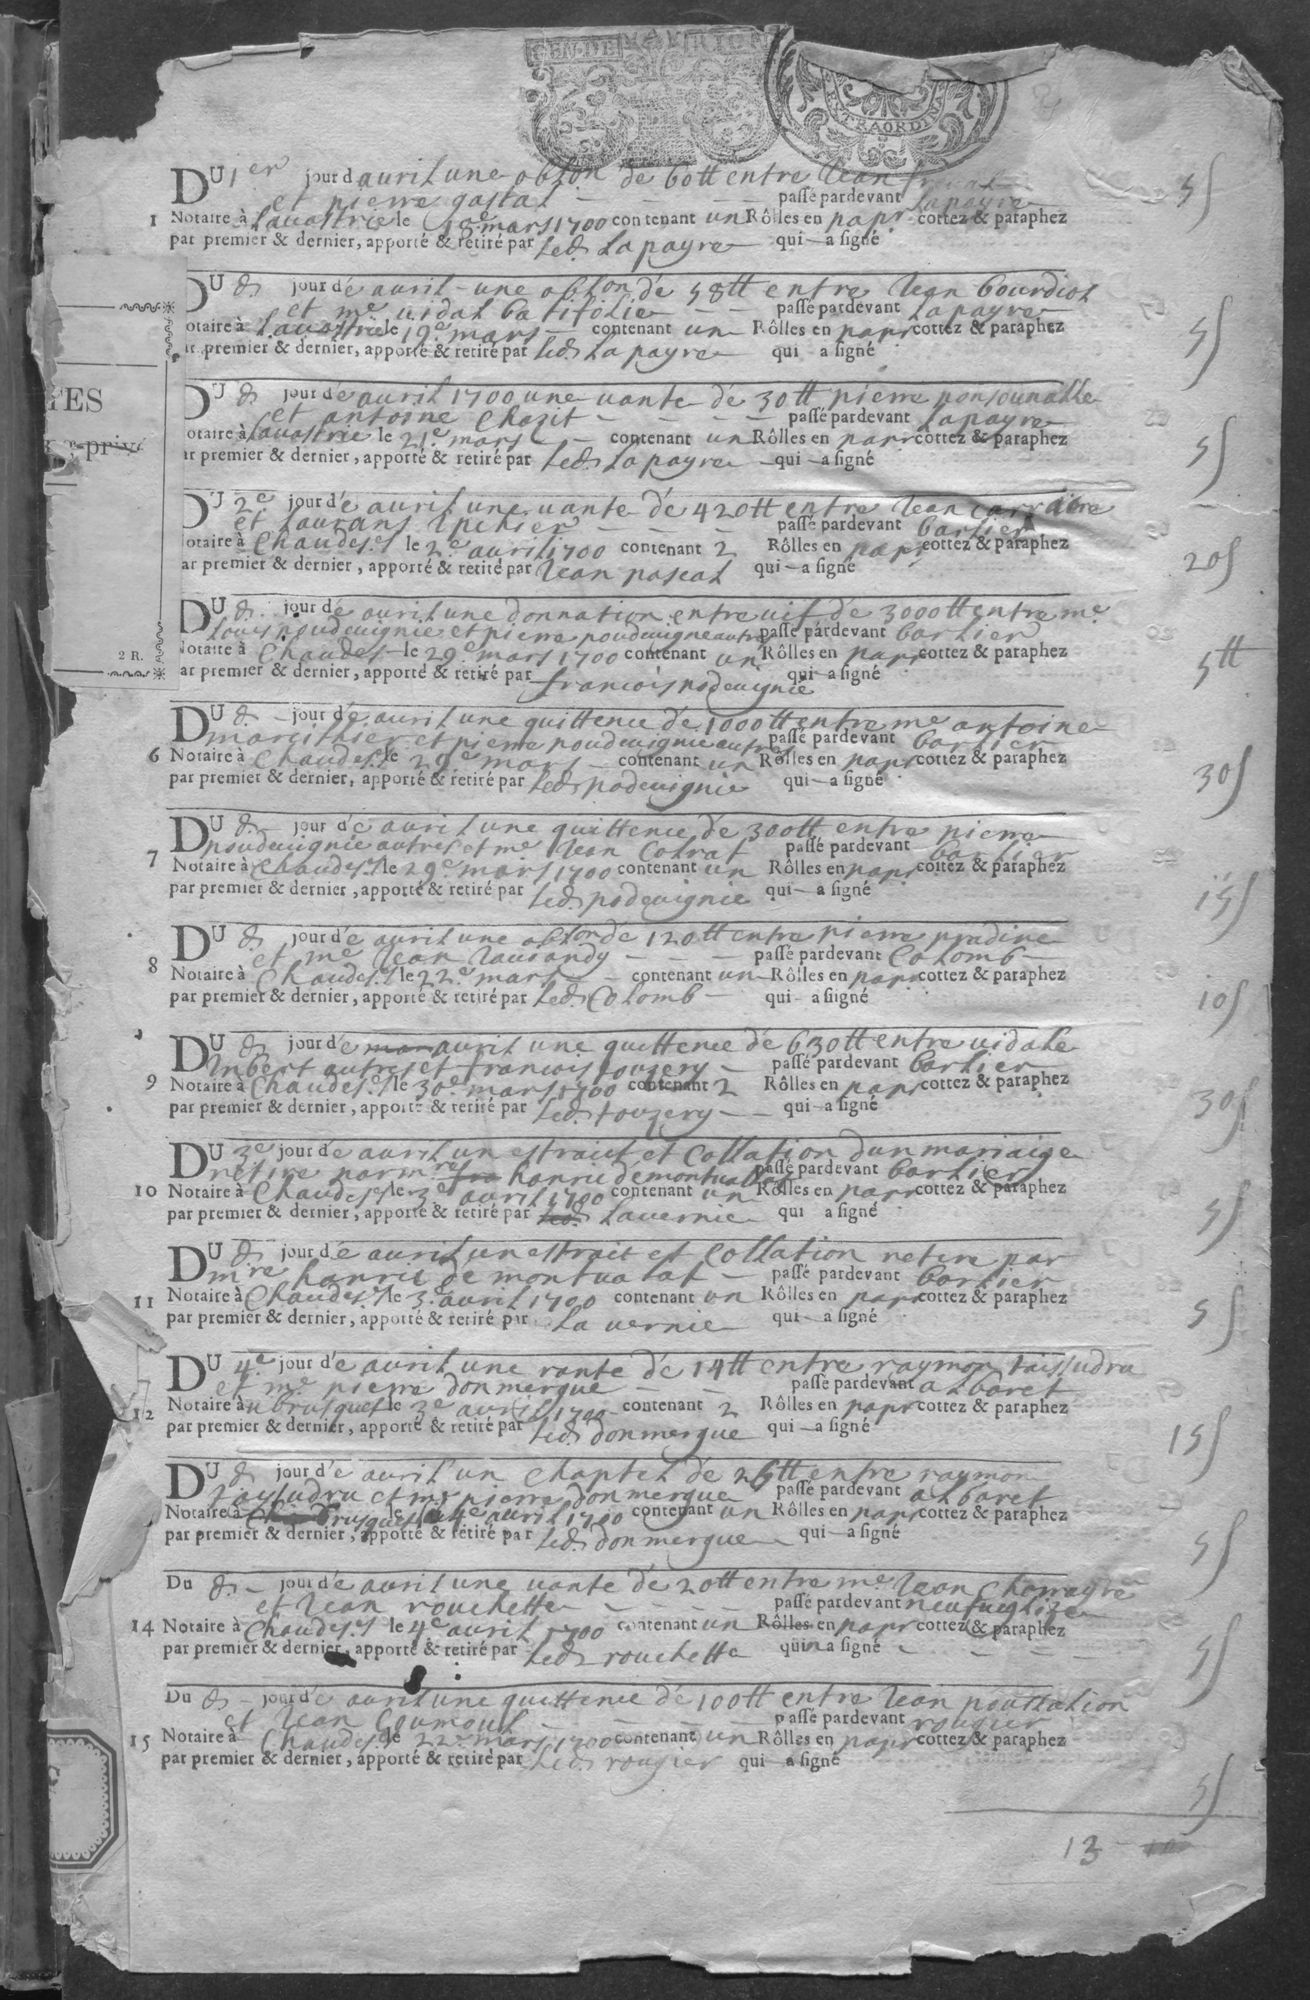 GEN·DE RIOM
EXTRAORDIN
DU 1er jour d avril une oblon de 60tt entre Jean
et pierre gastal passé pardevant Lapayre
1 Notaire à Lavastrie le mars 1700 contenant un Rôlles en papr cottez & paraphez
par premier & dernier, apporté & retiré par led. Lapayre qui a signé
5s
DU d. jour dé avril une oblon de 58tt entre Jean bourdiol
et me vidal batifolie passé pardevant Lapayre
otaire à Lavastrie le 19e mars contenant un Rôlles en papr cottez & paraphez
ar premier & dernier, apporté & retiré par led. Lapayre qui a signé
5s
TES
privé
DU d. jour dé avril 1700 une vante dé 30tt pierre ponsonnalhe
et antoine Chazit passé pardevant Lapayre
otaire à Lavastrie le 21e mars contenant un Rôlles en papr cottez & paraphez
ar premier & dernier, apporté & retiré par led. Lapayre qui a signé
5s
DU 2e jour dé avril une vante dé 420tt entre Jean Carriere
et Laurans passé pardevant barlier
otaire à Chaudes. le 2e avril 1700 contenant 2 Rôlles en papr cottez & paraphez
ar premier & dernier, apporté & retiré par Jean pascal qui a signé
20s
DU d. jour dé avril une donnation entre vif dé 3000tt entre me
Louis poudevignie et pierre poudevigne autres passé pardevant barlier
Notaire à Chaudes le 29e mars 1700 contenant un Rôlles en papr cottez & paraphez
ar premier & dernier, apporté & retiré par francois podevignie qui a signé
5tt
2 R.
DU d. jour dé avril une quittence dé 1000tt entre me antoine
et pierre poudevignie autres passé pardevant barlier
6 Notaire à Chaudes. le 29e mars contenant un Rôlles en papr cottez & paraphez
par premier & dernier, apporté & retiré par led. podevignie qui a signé
30s
DU d. jour dé avril une quittence de 300tt entre pierre
poudevignie autres et me Jean Colrat passé pardevant barlier
7 Notaire à Chaudes. le 29e mars 1700 contenant un Rôlles en papr cottez & paraphez
par premier & dernier, apporté & retiré par led. podevignie qui a signé
15s
DU d. jour dé avril une oblon dé 120tt entre pierre pradine
et me Jean passé pardevant Colomb
8 Notaire à Chaudes. le 22e mars contenant un Rôlles en papr cottez & paraphez
par premier & dernier, apporté & retiré par led. Colomb qui a signé
10s
DU d. jour dé avril une quittence dé 630tt entre vidalle
Imbert autres et francois touzery passé pardevant barlier
9 Notaire à Chaudes. le 30e mars 1700 contenant 2 Rôlles en papr cottez & paraphez
par premier & dernier, apporté & retiré par led. touzery qui a signé
30s
DU 3e jour dé avril un estrait et Collation dun mariaige
retire par mre hanric dé montvallat passé pardevant barlier
10 Notaire à Chaudes. le 3e avril 1700 contenant un Rôlles en papr cottez & paraphez
par premier & dernier, apporté & retiré par led. Lavernie qui a signé
5s
DU d. jour dé avril un estrait et Collation retire par
mre hanric de montvalat passé pardevant barlier
11 Notaire à Chaudes. le 3e avril 1700 contenant un Rôlles en papr cottez & paraphez
par premier & dernier, apporté & retiré par La vernie qui a signé
5s
DU 4e jour dé avril une rante dé 14tt entre raymon taissudru
et me pierre donmergue passé pardevant albaret
12 Notaire à brusques le 3e avril 1700 contenant 2 Rôlles en papr cottez & paraphez
par premier & dernier, apporté & retiré par led. donmergue qui a signé
15s
DU d. jour dé avril un chaptel dé 26tt entre raymon
et me pierre donmergue passé pardevant albaret
Notaire à brusques le 4e avril 1700 contenant un Rôlles en papr cottez & paraphez
par premier & dernier, apporté & retiré par led. donmergue qui a signé
5s
Du d. jour dé avril une vante dé 20tt entre me Jean Charrayre
et Jean rouchette passé pardevant neufveglize
14 Notaire à Chaudes. le 4e avril 1700 contenant un Rôlles en papr cottez & paraphez
par premier & dernier, apporté & retiré par led. rouchette qui n a signé
5s
Du d. jour dé avril une quittence dé 100tt entre Jean
et Jean passé pardevant rougier
15 Notaire à Chaudes. le 22e mars 1700 contenant un Rôlles en papr cottez & paraphez
par premier & dernier, apporté & retiré par led. rougier qui a signé
5s
13